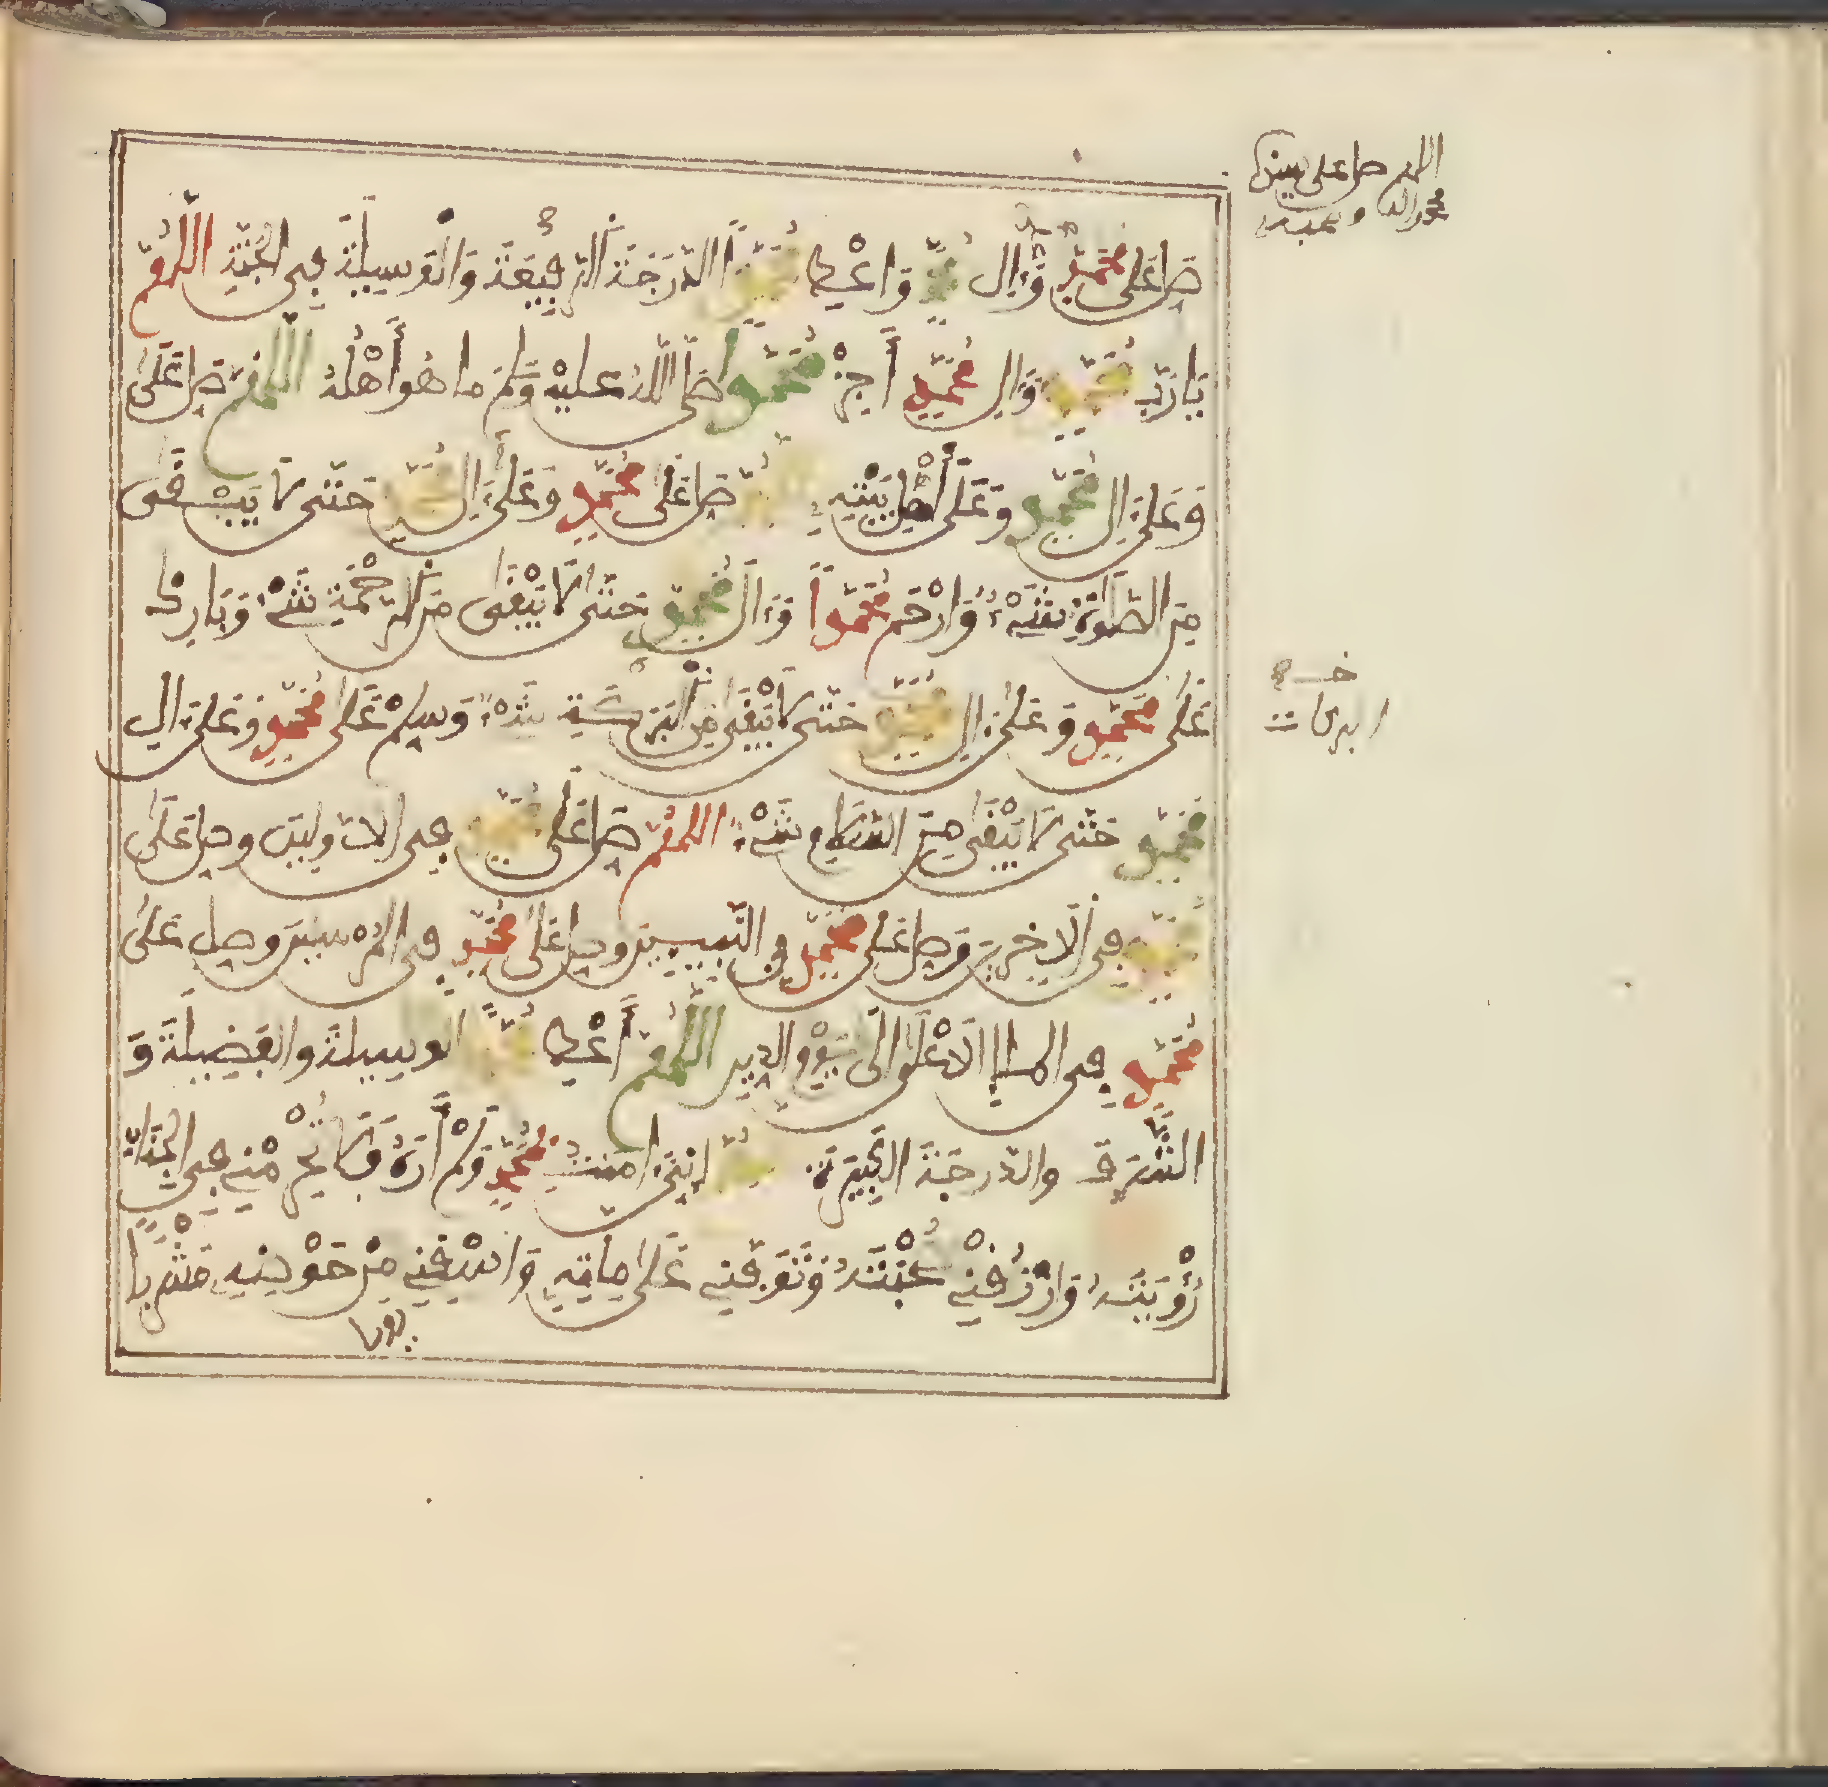 صَلِّ عَلَى مُحَمَّدٍ وَءَالِ مُحَمَّدٍ وَاعْطِ مُحَمَّدًا الدَّرَجَةَ الرَّفِيعَةَ وَالْوَسِيلَةَ فِى الْجَنَّةِ اللَّهُمَّ
يَا رَبَّ مُحَمَّدٍ وَءَالِ مُحَمَّدٍ أَجْزِ مُحَمَّدًا صَلَّى اللَّهُ عَلَيْهِ وَسَلَّمَ مَا هُوَ أَهْلُهُ اللَّهُمَّ صَلِّ عَلَى
مُحَمَّدٍ وَعَلَى ءَالِ مُحَمَّدٍ وَعَلَى أَهْلِ بَيْتِهِ اللَّهُمَّ صَلِّ عَلَى مُحَمَّدٍ وَعَلَى ءَالِ مُحَمَّدٍ حَتَّى لَا يَبْقَى
مِنَ الصَّلَوٰةِ شَىْءٌ وَارْحَمْ مُحَمَّدًا وَءَالَ مُحَمَّدٍ حَتَّى لَا يَبْقَى مِنَ الرَّحْمَةِ شَىْءٌ وَبَارِكْ
عَلَى مُحَمَّدٍ وَعَلَى ءَالِ مُحَمَّدٍ حَتَّى لَا يَبْقَى مِنَ الْبَرَكَةِ شَىْءٌ وَسَلِّمْ عَلَى مُحَمَّدٍ وَعَلَى ءَالِ
مُحَمَّدٍ حَتَّى لَا يَبْقَى مِنَ السَّلَامِ شَىْءٌ اللَّهُمَّ صَلِّ عَلَى مُحَمَّدٍ فِى الاوَّلِينَ وصل عَلَى
مُحَمَّدٍ فِى الَاخِرِينَ وَصَلِّ عَلَى مُحَمَّدٍ فِى النَّبِيِّينَ وصل عَلَى مُحَمَّدٍ فِى المرسلين وصل عَلَى
مُحَمَّدٍ فِى الملإ الَاعْلَى إلَى يَوْمِ الدِّينِ اللَّهُمَّ أَعْطِ مُحَمَّدًا الوسيلةَ والفَضِيلَةَ وَ
الشَّرَفَ والدرجَةَ الكَبِيرَةَ اللَّهُمَّ إِنِّى ءَامَنْتُ بِمُحَمَّدٍ وَلَمْ أَرَهُ فَلَا تَحْرِمْنِى فِى الْجِنَانِ
رُؤْيَتَهُ وَارْزُقْنِى صُحْبَتَهُ وَتَوَفَّنِى عَلَى مِلَّتِهِ وَاسْقِنِى مِنْ حَوْضِهِ مَشْرَبًا
رويا
اللهم صل على سيدنا
محمد واله وصحبه
البركات